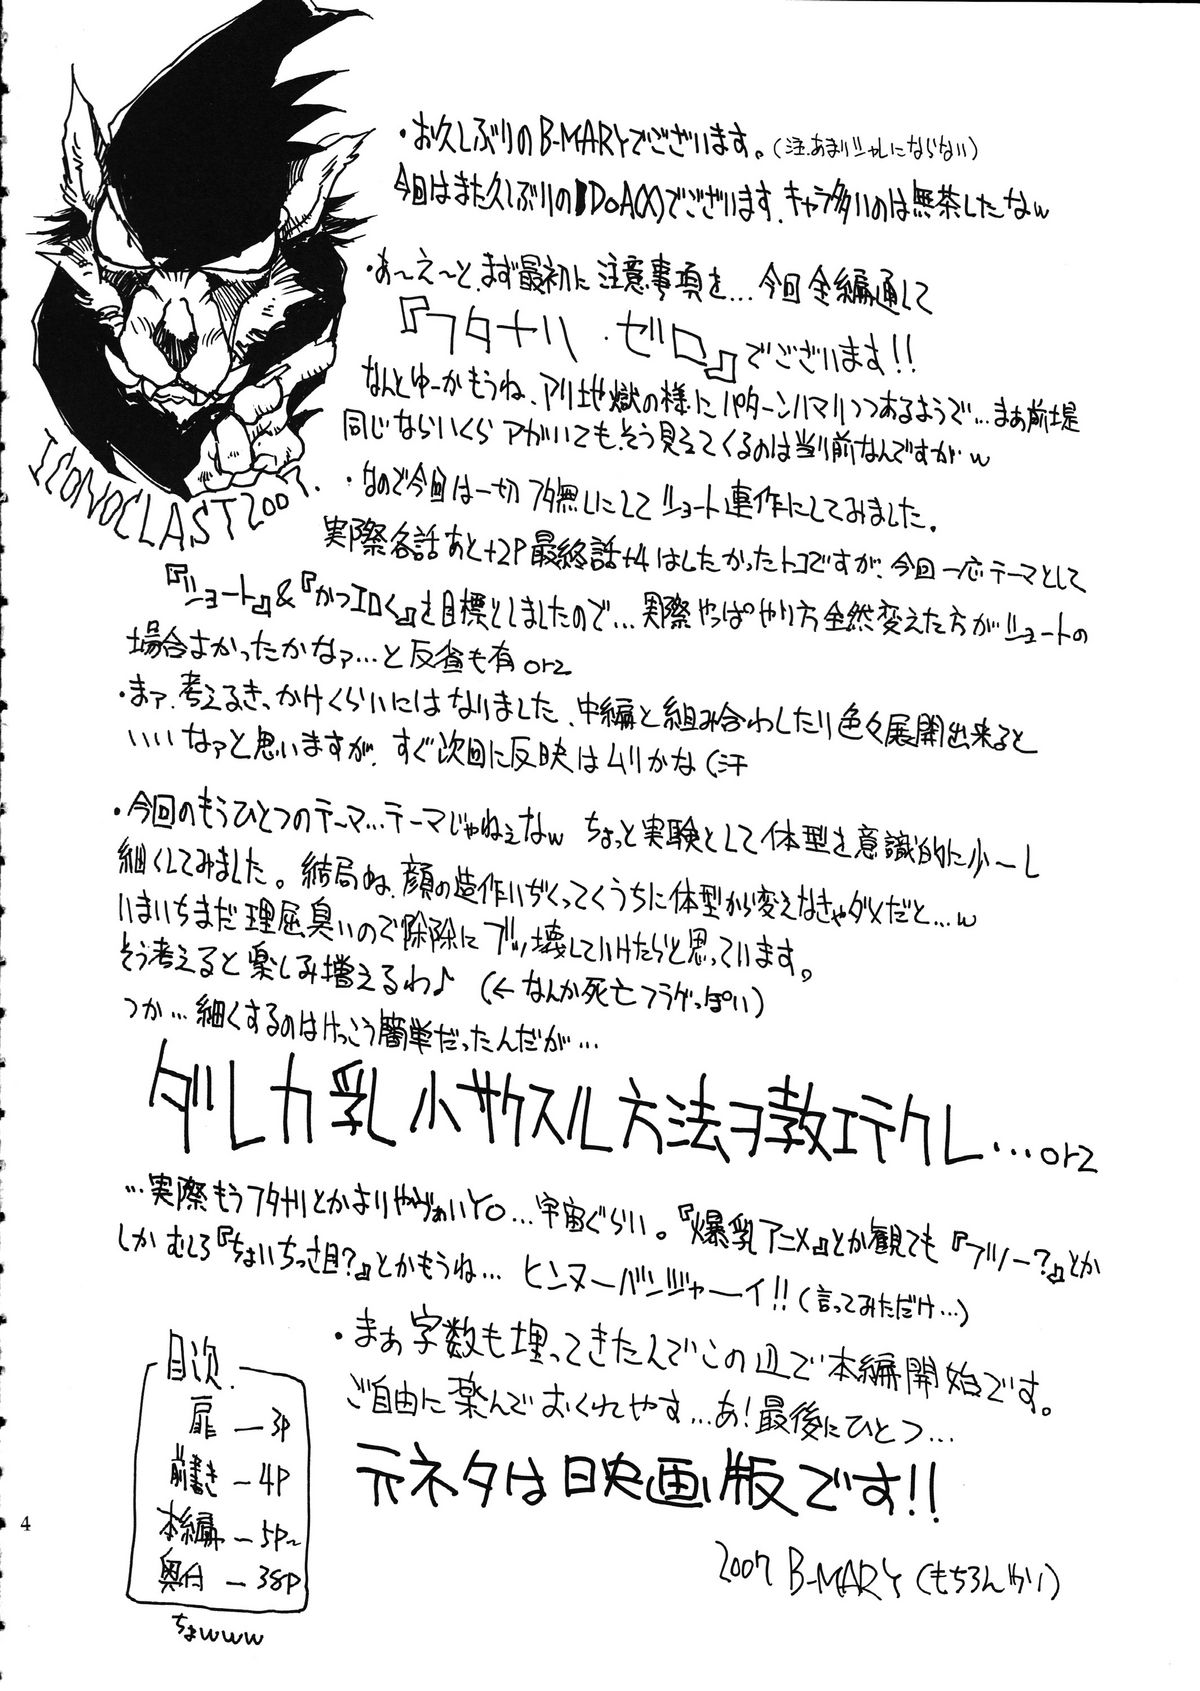 ・お久しぶりのB-MARYでございます。(注.あまりシャレにならない)
今回はまた久しぶりのDoA(X)でございます、キャラ多いのは無茶したなw
・あ〜え〜と、まず最初に注意事項を…今回全編通して
『フタナリ・ゼロ』でございます!!
なんとゆーかもうね、アリ地獄の様にパターンハマりつつあるようで…まあ前堤
同じならいくらアがいてもそう見えてくるのは当り前なんですがw
・なので今回は一切フタ無しにしてショート連作にしてみました。
実際各話あと+2P最終話+4はしたかったトコですが、今回一応テーマとして
『ショート』&『かつエロく』を目標としましたので…実際やっぱやり方全然変えた方がショートの
場合よかったかなァ…と反省も有orz
・まァ、考えるきっかけくらいにはなりました、中編と組み合わしたり色々展開出来ると
いいなァと思いますが、すぐ次回に反映はムリかな(汗
・今回のもうひとつのテーマ…テーマじゃねぇなw ちょっと実験として体型を意識的に少〜し
細くしてみました。結局ね、顔の造作いぢくってくうちに体型から変えなきゃダメだと…w
いまいちまだ理屈臭いので除除にブッ壊していけたらと思っています。
そう考えると楽しみ増えるわ♪ (←なんか死亡フラグっぽい)
つか…細くするのはけっこう簡単だったんだが…
ダレカ乳小サクスル方法ヲ教エテクレ…orz
…実際もうフタナリとかよりやヴぁいYO…宇宙ぐらい。『爆乳アニメ』とか観ても『フツー?』とか
しかむしろ『ちょいちっさ目?』とかもうね… ヒンヌーバンジャーイ!!(言ってみただけ…)
・まぁ字数も埋ってきたんでこの辺で本編開始です。
ご自由に楽んでおくれやす…あ!最後にひとつ…
元ネタは日映画版です!!
2007 B-MARY (もちろんかり)
ICONOCLAST2007.
目次.
扉―3P
前書き―4P
本編―5P~
奥付―38P
ちょwww
4